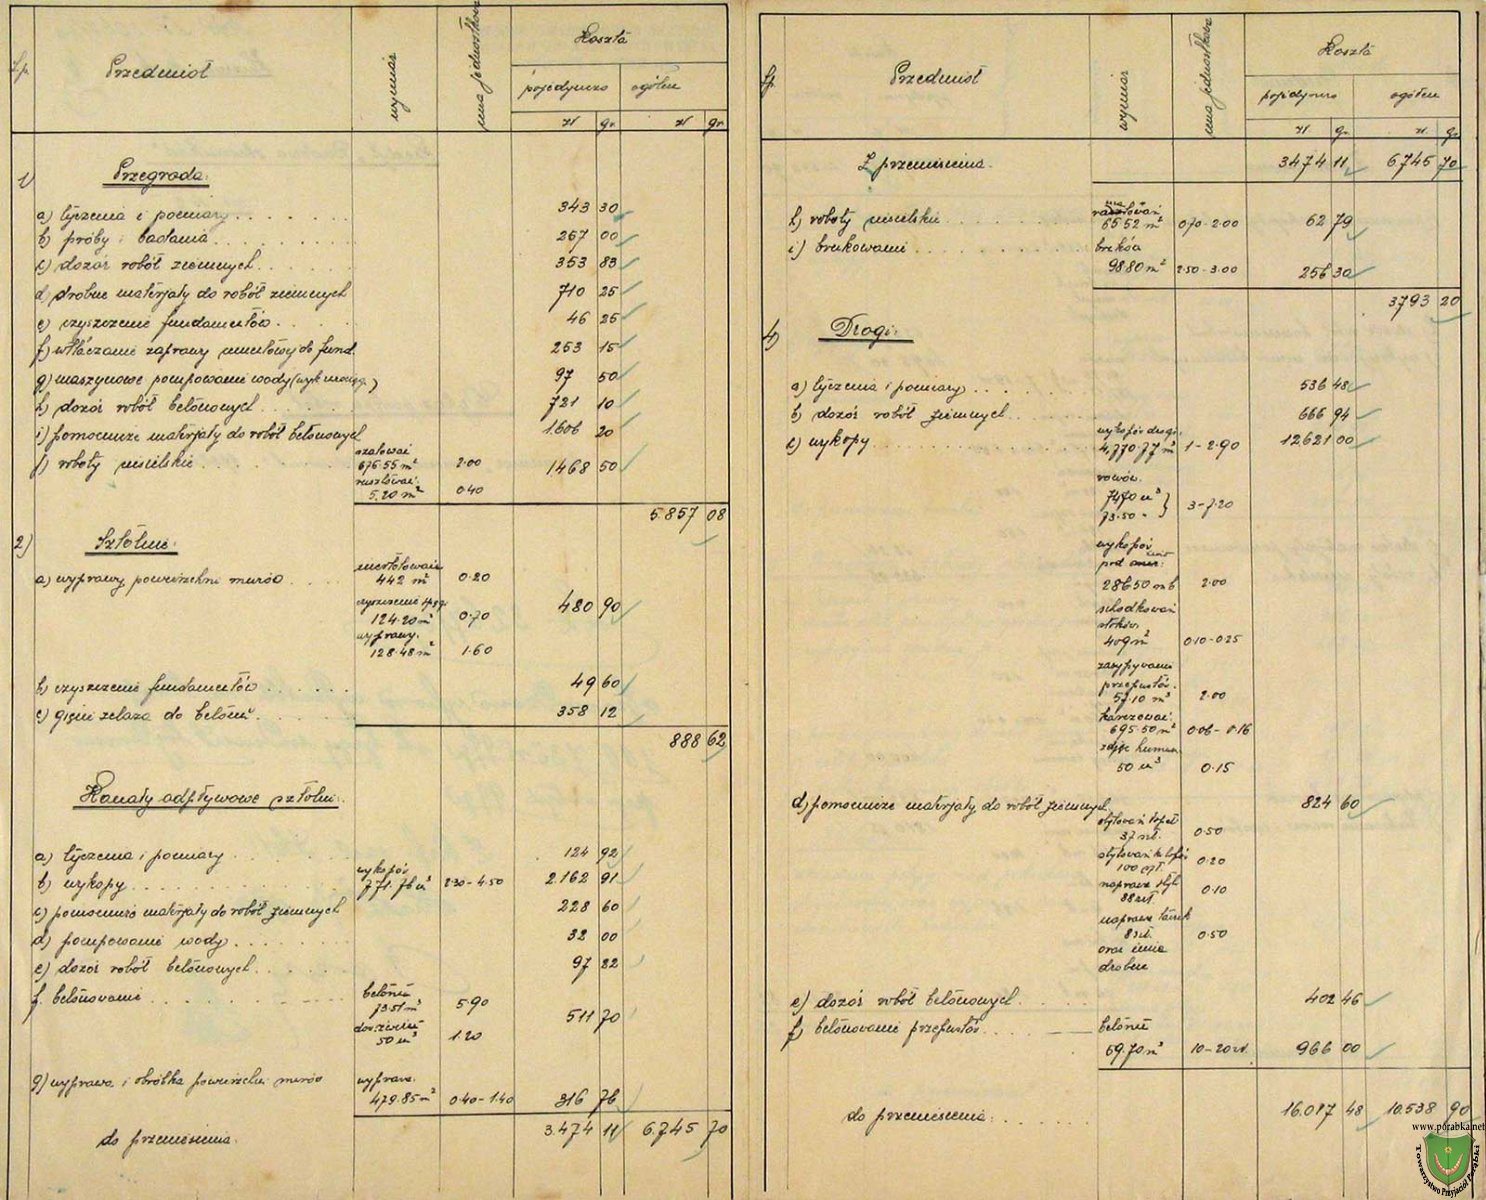 Lp. Przedmiot wymiar cena jednostkowa Koszta
pojedynczo ogółem
zł gr. zł gr.
1) Przegroda.
a) tyczenia i pomiary . . . . . . 343 30
b) próby i badania . . . . . . 267 00
c) dozór robót ziemnych . . . . 353 83
d) drobne materjały do robót ziemnych 710 25
e) czyszczenie fundamentów . . . 46 25
f) wtłaczanie zaprawy cementowej do fund. 253 15
g) maszynowe pompowanie wody 97 50
h) dozór robót betonowych . . . 721 10
i) pomocnicze materjały do robót betonowych 1.606 20
j) roboty ciesielskie . . . . . . szalowań
676.55 m² 2.00 1468 50
rusztowań.
5.20 m² 0.40
5.857 08
2) Sztolnie.
a) wyprawy powierzchni murów . . .
442 m² 0.20
czyszczenie
124.20 m² 0.70 480 90
wyprawy.
128.48 m² 1.60
b) czyszczenie fundamentów . . . . . 49 60
c) gięcie żelaza do betonu . . . . . 358 12
888 62
Kanały odpływowe sztolni.
a) tyczenia i pomiary . . . . . 124 92
b) wykopy . . . . . . wykopów
771.76 m³ 2.30 - 4.50 2.162 91
c) pomocnicze materjały do robót ziemnych 228 60
d) pompowanie wody . . . . . . 32 00
e) dozór robót betonowych . . . . 97 82
f. betonowanie . . . . . . betonu
73.51 m³ 5.90 511 70
50 m³ 1.20
g) wyprawa i obróbka powierzchni murów wypraw.
479.85 m² 0.40 - 1.40 316 76
do przeniesienia. 3.474 11 6.745 70
Lp. Przedmiot wymiar cena jednostkowa Koszta
pojedynczo ogółem
zł gr. zł gr.
Z przeniesienia. 3474 11 6745 70
h) roboty ciesielskie . . . . . .
65.52 m² 0.70 - 2.00 62 79
i) brukowanie . . . . . . bruków
98.80 m² 2.50 - 3.00 256 30
3793 20
4) Drogi.
a) tyczenia i pomiary . . . . 536 48
b) dozór robót ziemnych . . . . 666 94
c) wykopy . . . . . . wykopów drog.
4,770.77 m³ 1 - 2.90 12621 00
rowów.
7470 m³ }
73.50 " } 3 - 7.20
wykopów
pod
286.50 m b 2.00
schodkowań
stoków.
409 m² 0.10 - 0.25
zasypywanie
przepustów.
57.10 m³ 2.00
karczowań.
695.50 m² 0.06 - 0.16
zdjęc. humusu
50 m³ 0.15
d) pomocnicze materjały do robót ziemnych 824 60
stylowań łopat
37 szt. 0.50
stylowań kilofów
100 szt. 0.20
naprawa styl.
88 szt 0.10
naprawa taczek
8 szt. 0.50
oraz inne
drobne
e) dozór robót betonowych . . . . 402 46
f) betonowanie przepustów . . . . betonu
69.70 m³ 10 - 20 zł. 966 00
do przeniesienia. . . . . . 16.017 48 10.538 90
www.porabka.net
Towarzystwo Przyjaciół Porąbki